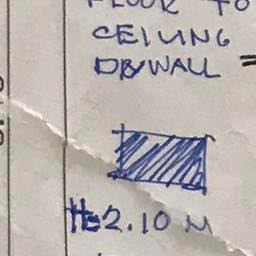 FLOOR TO
CEILING
DRYWALL =
H=2.10 M